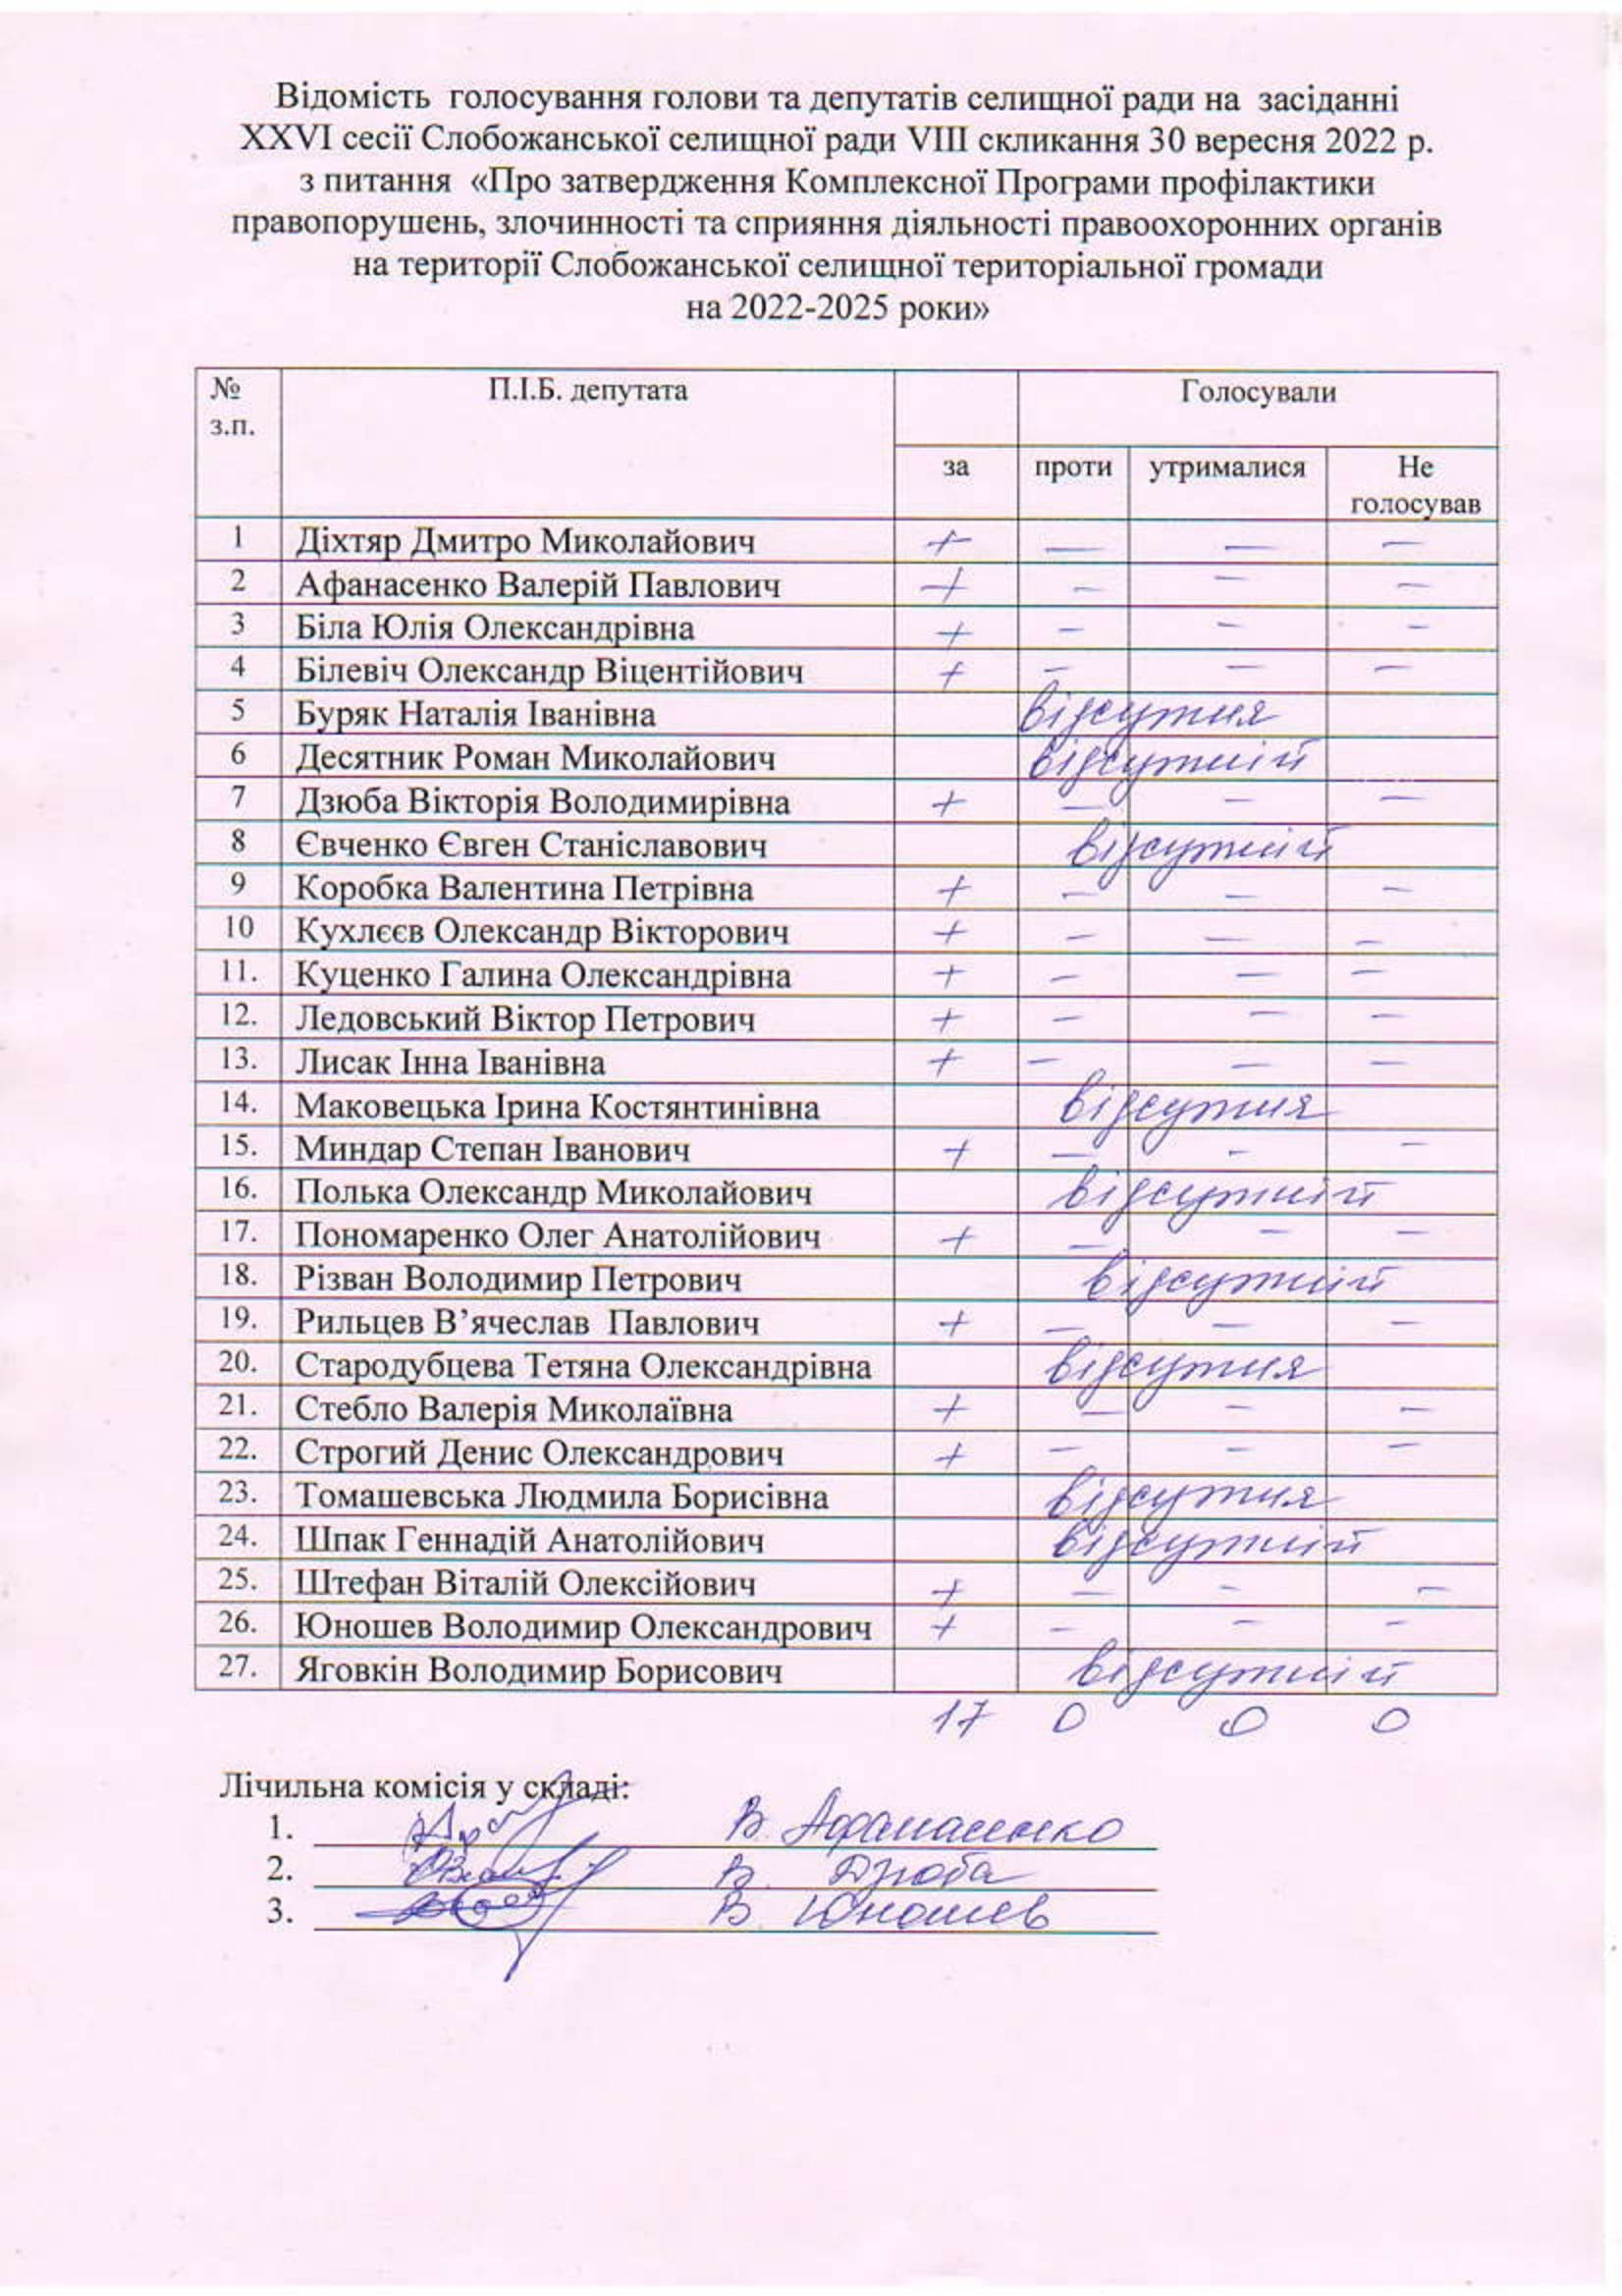 Відомість голосування голови та депутатів селищної ради на засіданні
XXVI сесії Слобожанської селищної ради VIII скликання 30 вересня 2022 р.
з питання «Про затвердження Комплексної Програми профілактики
правопорушень, злочинності та сприяння діяльності правоохоронних органів
на території Слобожанської селищної територіальної громади
на 2022-2025 роки»
№ П.І.Б. депутата Голосували
з.п.
за проти утрималися Не
голосував
1 Діхтяр Дмитро Миколайович + — — —
2 Афанасенко Валерій Павлович + — — —
3 Біла Юлія Олександрівна + — — —
4 Білевіч Олександр Віцентійович + — — —
5 Буряк Наталія Іванівна відсутня
6 Десятник Роман Миколайович відсутній
7 Дзюба Вікторія Володимирівна + — — —
8 Євченко Євген Станіславович відсутній
9 Коробка Валентина Петрівна + — — —
10 Кухлєєв Олександр Вікторович + — — —
11. Куценко Галина Олександрівна + — — —
12. Ледовський Віктор Петрович + — — —
13. Лисак Інна Іванівна + — — —
14. Маковецька Ірина Костянтинівна відсутня
15. Миндар Степан Іванович + — — —
16. Полька Олександр Миколайович відсутній
17. Пономаренко Олег Анатолійович + — — —
18. Різван Володимир Петрович відсутній
19. Рильцев В’ячеслав Павлович + — — —
20. Стародубцева Тетяна Олександрівна відсутня
21. Стебло Валерія Миколаївна + — — —
22. Строгий Денис Олександрович + — — —
23. Томашевська Людмила Борисівна відсутня
24. Шпак Геннадій Анатолійович відсутній
25. Штефан Віталій Олексійович + — — —
26. Юношев Володимир Олександрович + — — —
27. Яговкін Володимир Борисович відсутній
17 0 0 0
Лічильна комісія у складі:
1. В. Афанасенко
2. В. Дзюба
3. В. Юношев